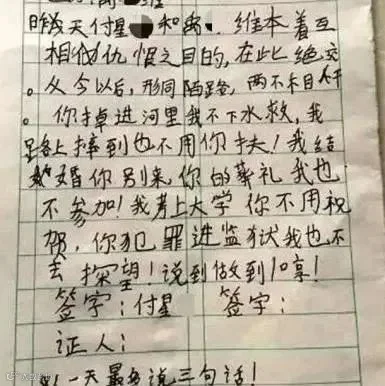 昨天付星 和 . 维本着互
相仇恨之目的,在此绝交
。从今以后,形同陌路,两不相干
。你掉进河里我不下水救,我
路上摔到也不用你扶!我结
婚你别来,你的葬礼我也
不参加!我考上大学你不用祝
贺,你犯罪进监狱我也不
去探望!说到做到10享!
签字:付星 签字:
证人:
一天最多说三句话!